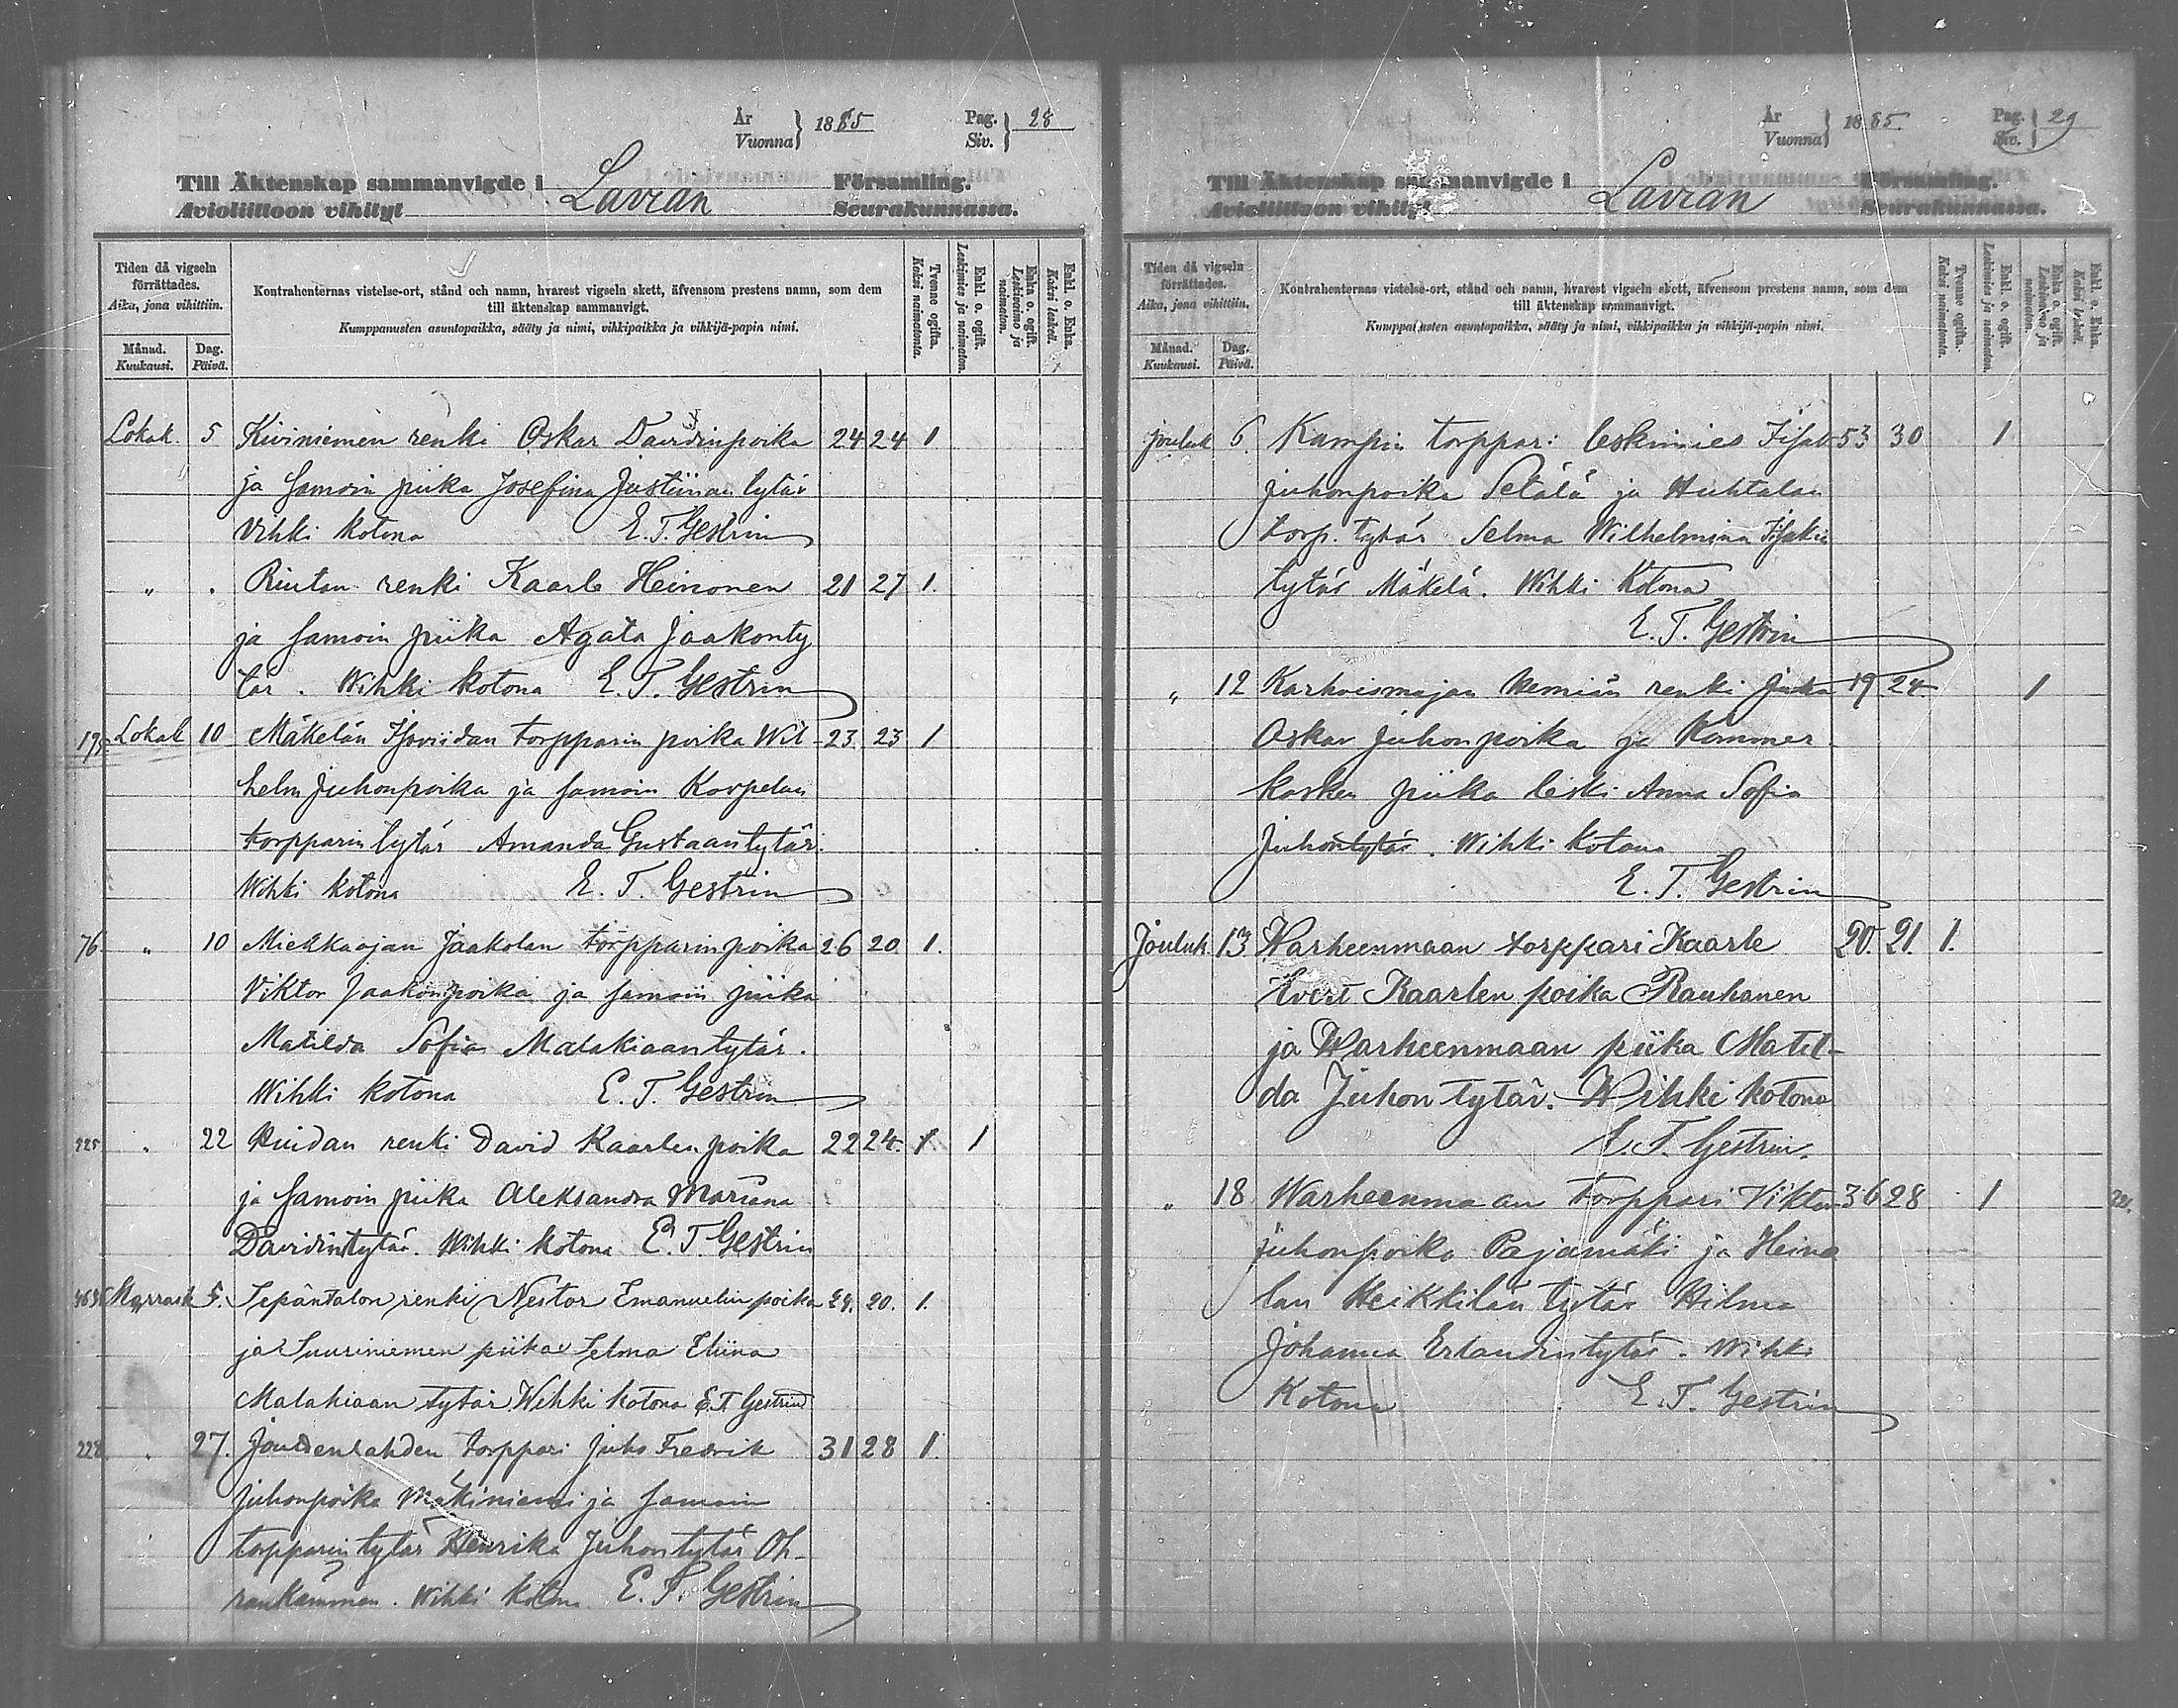 År
Vuonna } 1885
Pag.
Siv. } 28
Till Äktenskap sammanvigde i Lavian Församling.
Avioliittoon vihityt Seurakunnassa.
Tiden då vigseln förrättades.
Aika, jona vihittiin.
Månad.
Kuukausi.
Dag.
Päivä.
Kontrahenternas vistelse-ort, stånd och namn, hvarest vigseln skett, äfvensom prestens namn, som dem
till äktenskap sammanvigt.
Kumppanusten asuntopaikka, sääty ja nimi, vihkipaikka ja vihkijä-papin nimi.
Tvenne ogifta.
Kaksi naimatonta.
Enkl. o. ogift.
Leskimies ja naimaton.
Enka o. ogift.
Leskivaimo ja naimaton.
Enkl. o. Enka.
Kaksi leskeä.
Lokak. 5 Kiviniemen renki Oskar Davidinpoika 24 24 1
ja samoin piika Josefina Justiinan tytär
Vihki kotona E. T. Gestrin
" " renki Kaarle Heinonen 21 27 1.
ja samoin piika Agata Jaakonty
tär. Wihki kotona E. T. Gestrin
Lokak 10 Mäkelän torpparin poika Wil- 23 23 1
helm Juhonpoika ja samoin Korpelan
torpparin tytär Amanda Gustaantytär.
Wihki kotona E. T. Gestrin
76. " 10 Miekkaojan Jaakolan torpparinpoika 26 20 1.
Viktor Jaakonpoika ja samoin piika
Matilda Sofia Malakiaantytär.
Wihki kotona E. T. Gestrin
225 " 22 Huidan renki David Kaarlenpoika 22 24. 1 1
ja samoin piika Aleksandra Mariana
Davidintytär. Wihki kotona E. T. Gestrin
Marrask 5. Sepäntalon renki Nestor Emanuelin poika 29. 20. 1.
ja Suuriniemen piika Selma Eliina
Malakiaan tytär. Wihki kotona E. T. Gestrin
" 27. torppari Juho Fredrik 31 28 1.
Juhonpoika Mäkiniemi ja samoin
torpparin tytär Henrika Juhontytär Oh-
rankämmen. Wihki kotona E. T. Gestrin
År
Vuonna } 1885
Pag.
Siv. } 29
Till Äktenskap sammanvigde i Lavian Församling.
Avioliittoon vihityt Seurakunnassa.
Tiden då vigseln förrättades.
Aika, jona vihittiin.
Månad.
Kuukausi.
Dag.
Päivä.
Kontrahenternas vistelse-ort, stånd och namn, hvarest vigseln skett, äfvensom prestens namn, som dem
till äktenskap sammanvigt.
Kumppanusten asuntopaikka, sääty ja nimi, vihkipaikka ja vihkijä-papin nimi.
Tvenne ogifta.
Kaksi naimatonta.
Enkl. o. ogift.
Leskimies ja naimaton.
Enka o. ogift.
Leskivaimo ja naimaton.
Enkl. o. Enka.
Kaksi leskeä.
Jouluk 6. Kampin torppari leskimies Iisak 53 30 1
Juhonpoika Setälä ja Huhtalan
torp. tytär Selma Wilhelmina Iisakin
tytär Mäkelä. Wihki kotona
E. T. Gestrin
" 12 Karhoismajan renki Juha 19 24 1
Oskar Juhonpoika ja Kammer
kosken piika leski Anna Sofia
Juhontytär. Wihki kotona
E. T. Gestrin
Jouluk. 13. Warheenmaan torppari Kaarle 20. 21. 1.
Evert Kaarlen poika Rauhanen
ja Warheenmaan piika Matil-
da Juhon tytär. Wihki kotona
E. T. Gestrin.
" 18 Warheenmaan torppari Viktor 36 28 1
Juhonpoika Pajamäki ja Heina
lan Heikkilän tytär Hilma
Johanna Erlandintytär. Wihki
Kotona E. T. Gestrin